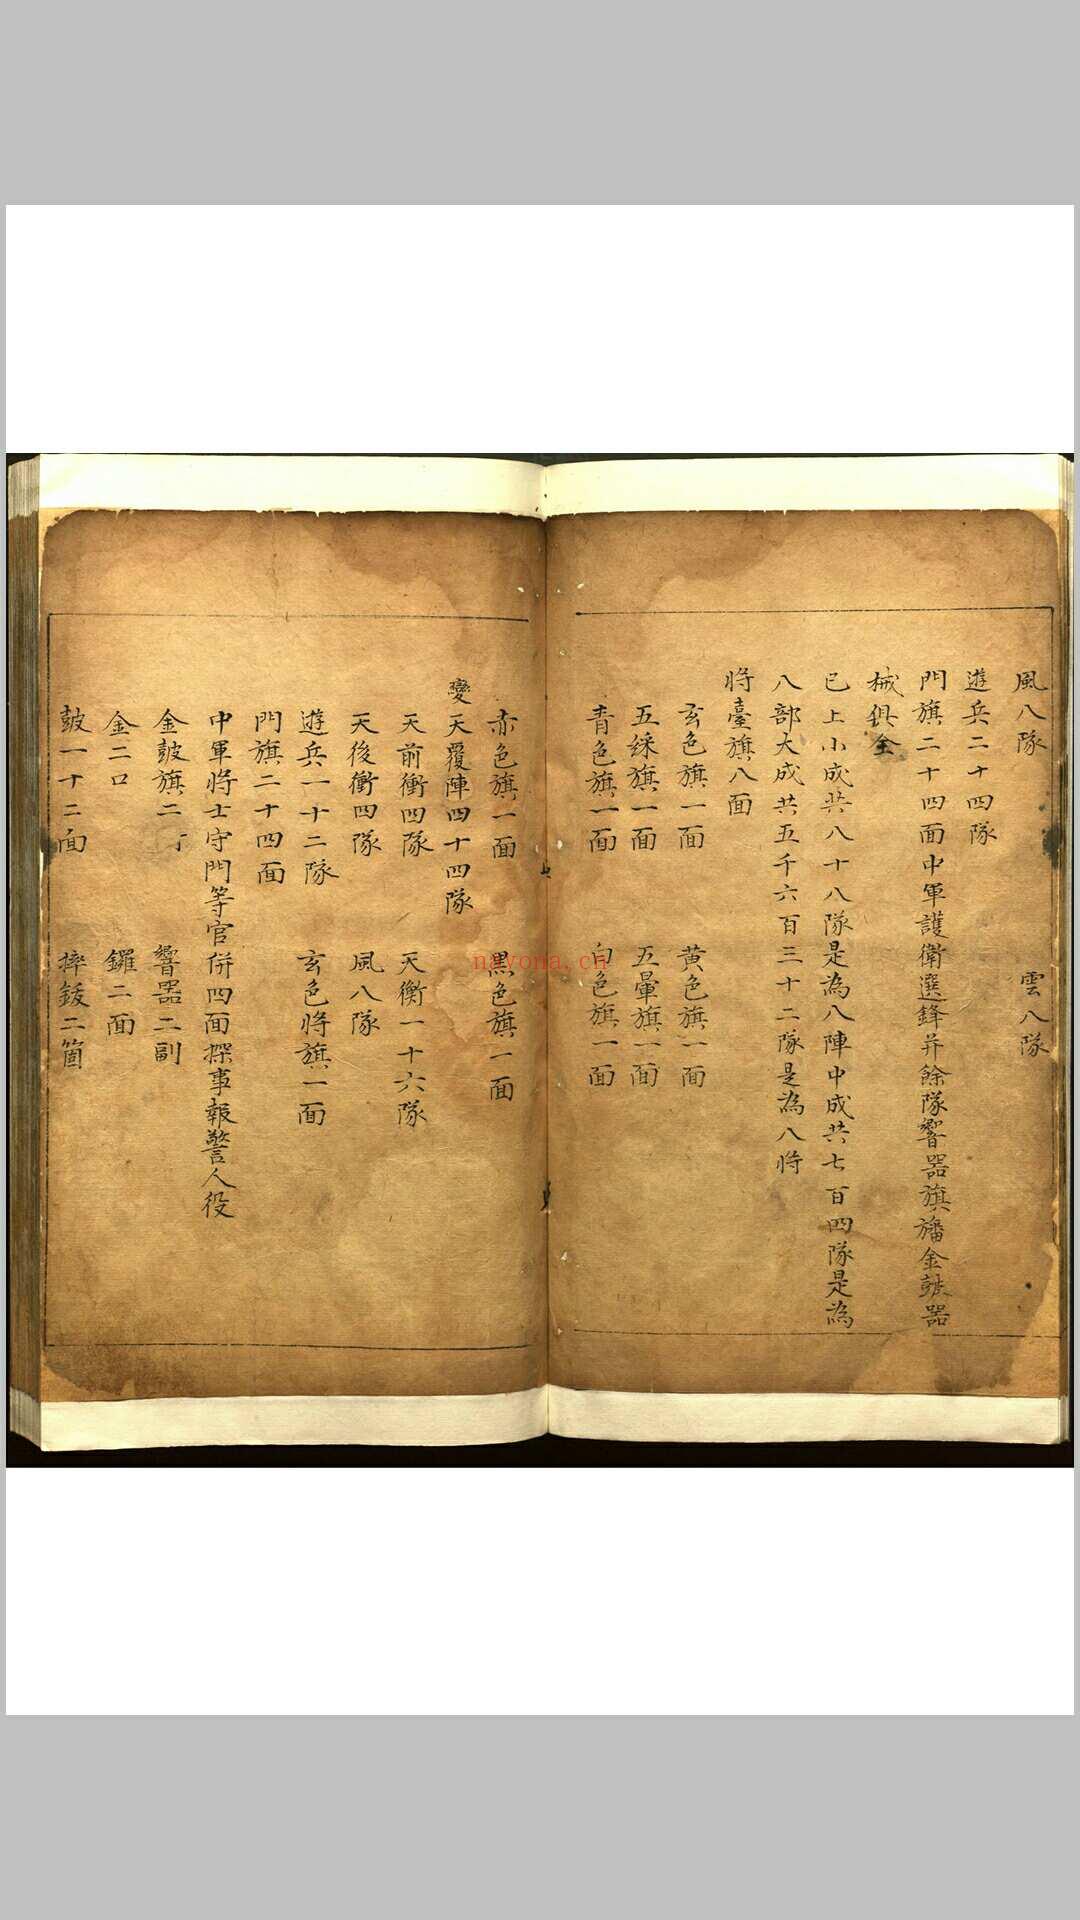 風八隊　雲八隊
遊兵二十四隊
門旗二十四面中軍護衛選鋒并餘隊響器旗旛金鼓器
械俱全
已上小成共八十八隊是為八陣中成共七百四隊是為
八部大成共五千六百三十二隊是為八將
將臺旗八面
玄色旗一面　黃色旗一面
五綵旗一面　五暈旗一面
青色旗一面　白色旗一面
赤色旗一面　黑色旗一面
變天覆陣四十四隊
天前衝四隊　天衡一十六隊
天後衝四隊　風八隊
遊兵一十二隊　玄色將旗一面
門旗二十四面
中軍將士守門等官併四面探事報警人役
金鼓旗二　響器二副
金二口　鑼二面
鼓一十二面　摔鈸二箇
nayona.cn